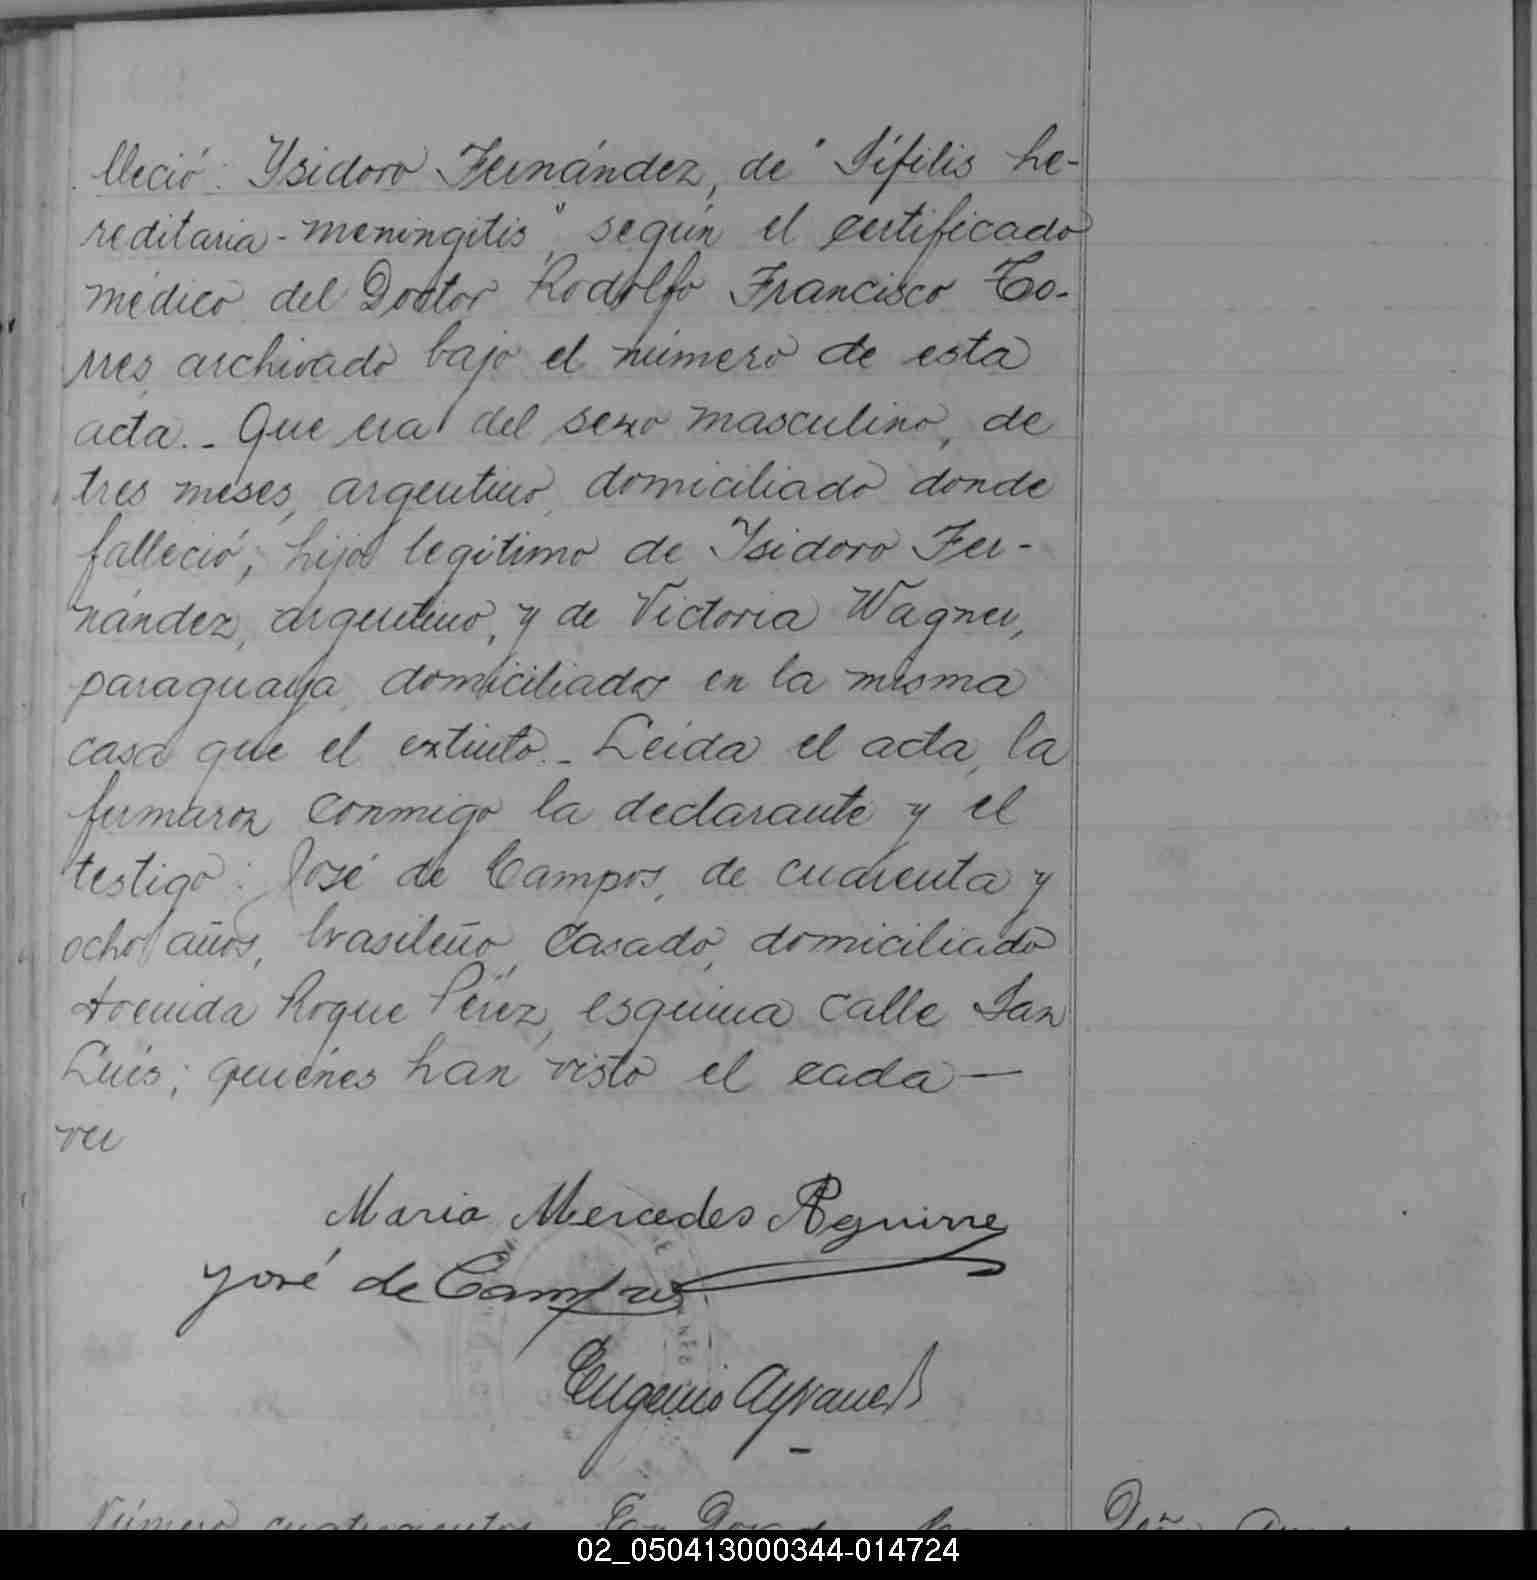 lleció: Ysidoro Fernández, de "Sífilis he-
reditaria-meningitis", según el certificado
médico del Doctor Rodolfo Francisco To-
rres, archivado bajo el número de esta
acta._ Que era del sexo masculino, de
tres meses, argentino, domiciliado donde
falleció; hijo legítimo de Ysidoro Fer-
nández, argentino, y de Victoria Wagner,
paraguaya, domiciliados en la misma
casa que el extinto._ Leida el acta, la
firmaron conmigo la declarante y el
testigo: José de Campos, de cuarenta y
ocho años, brasileño, casado, domiciliado
Avenida Roque Pérez, esquina calle San
Luis; quiénes han visto el cada—
ver
Maria Mercedes Aguirre
José de Campos
Eugenio
Número cuatrocientos. En
02_050413000344-014724